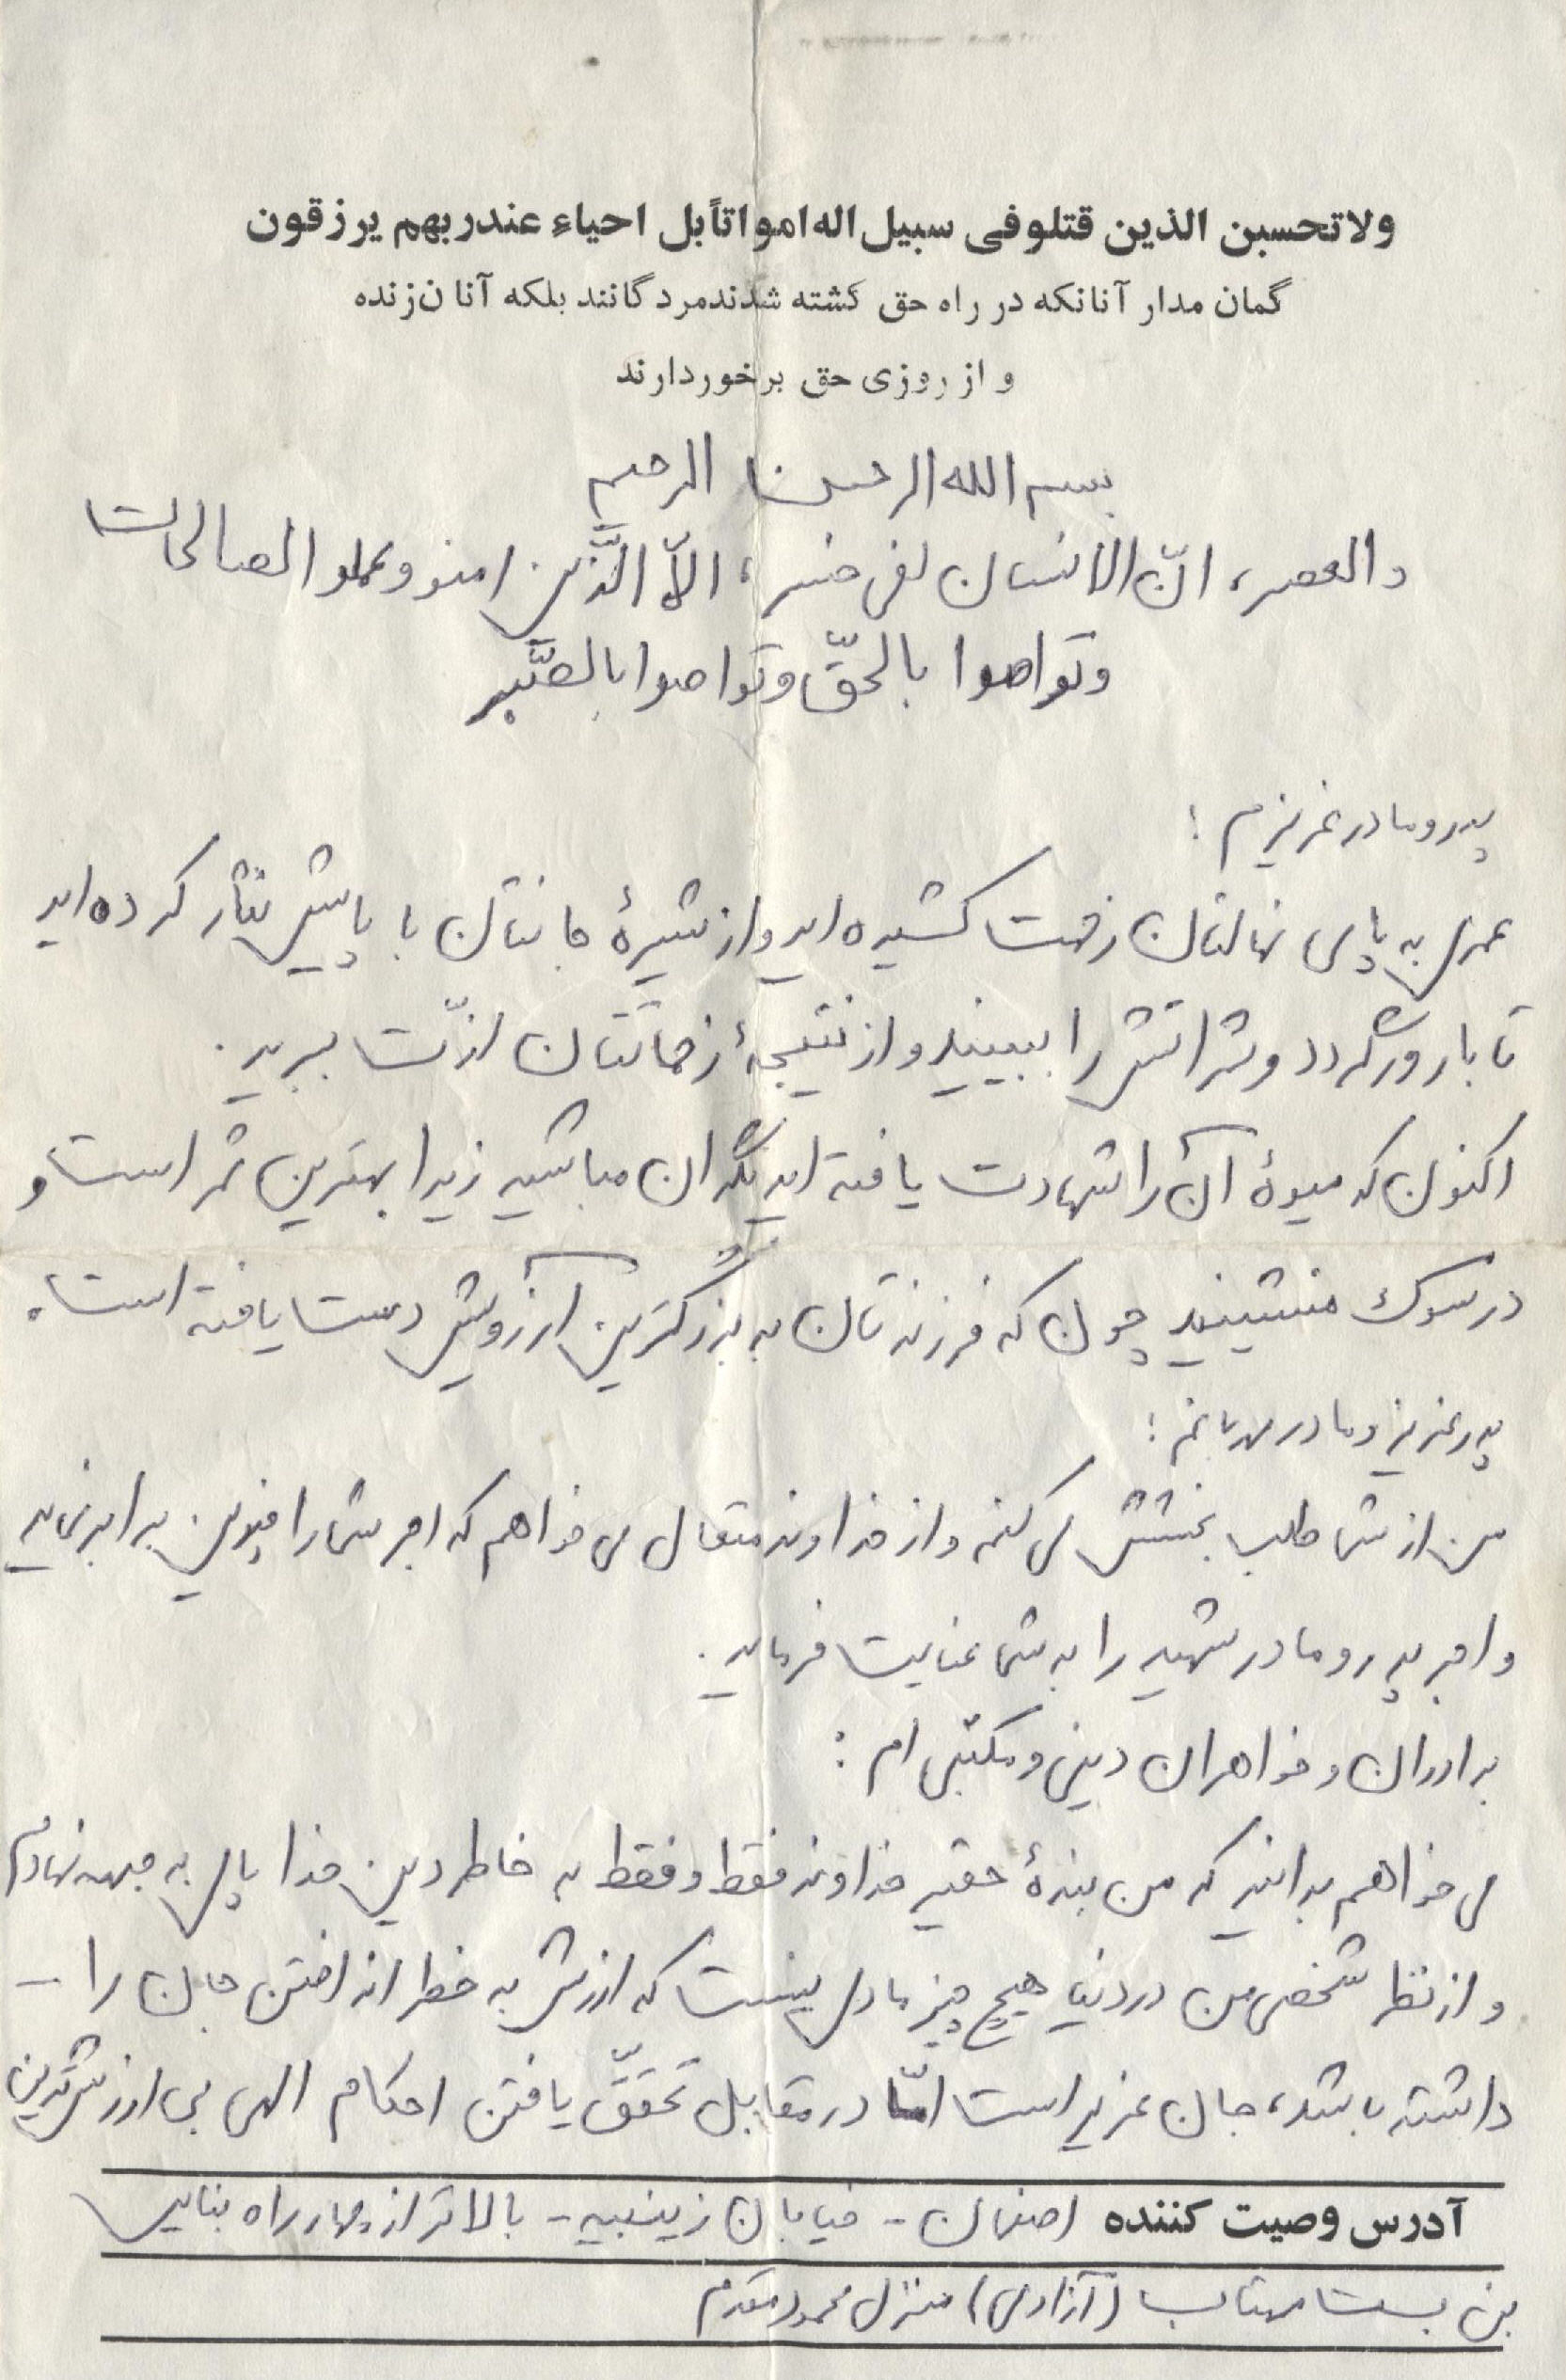 ولاتحسبن الذین قتلوفی سبیل اله امواتاً بل احیاء عندربهم یرزقون
گمان مدار آنانکه در راه حق کشته شدندمردگانند بلکه آنان زنده
و از روزی حق برخوردارند
بسم الله الرحمن الرحیم
والعصر، انّ الانسان لفی خسر، الاّ الَّذین امنو و عملو الصالحات
وتواصوا بالحقّ وتواصوا بالصَّبر
پدر و مادر عزیزم :
عمری به پای نهالتان زحمت کشیده اید و از شیرهٔ جانتان با پایش نثار کرده اید
تا بارور گردد و ثمراتش را ببینید و از نتیجهٔ زحماتتان لذّت ببرید.
اکنون که میوهٔ آن را شهادت یافته اید نگران مباشید زیرا بهترین ثمر است و
در سوگ منشینید چون که فرزندتان به بزرگترین آرزویش دست یافته است.
پدر عزیز و مادر مهربانم :
من از شما طلب بخشش می کنم و از خداوند متعال می خواهم که اجر شما را چندین برابر نماید
و اجر پدر و مادر شهید را به شما عنایت فرماید.
برادران و خواهران دینی و مکتبی ام :
می خواهم بدانید که من بندهٔ حقیر خداوند فقط و فقط به خاطر دین خدا پای به جبهه نهادم
و از نظر شخص من در دنیا هیچ چیز مادی نیست که ارزش به خطر انداختن جان را –
داشته باشد، جان عزیز است امّا در مقابل تحقّق یافتن احکام الهی بی ارزش ترین
آدرس وصیت کننده اصفهان - خیابان زینبیه - بالاتر از چهارراه
بن بست مهتاب (آزادی) منزل محمود مقدم